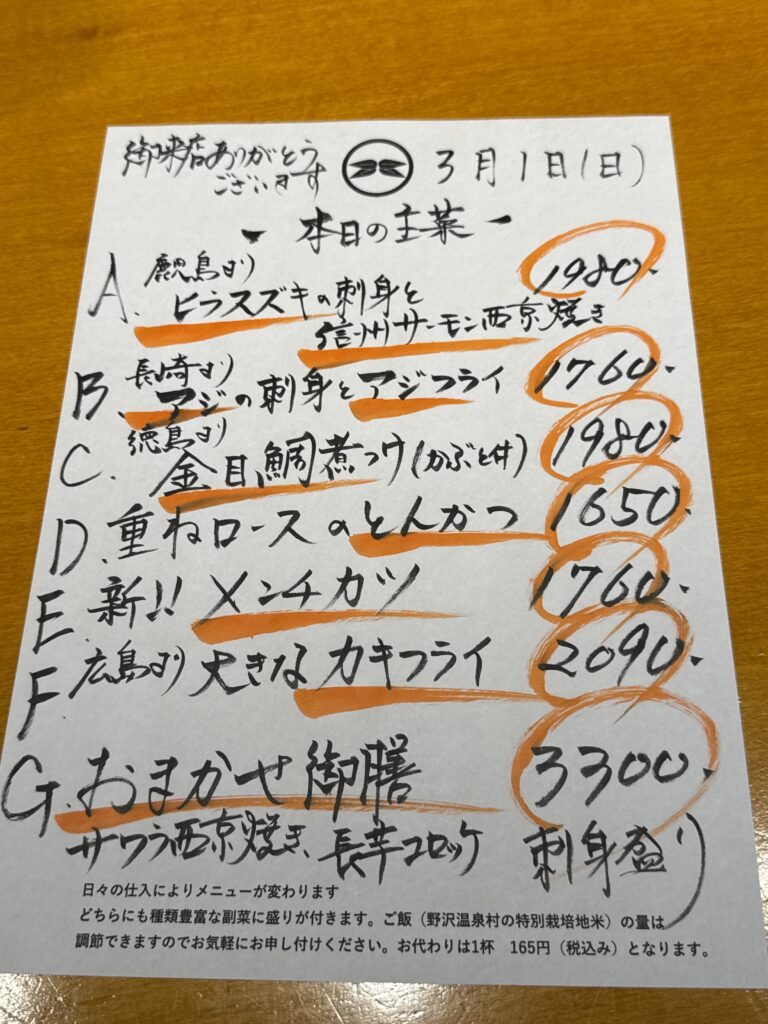 御来店ありがとう
ございます
3月1日(日)
本日の主菜
A. 鹿児島より 1980.
ヒラスズキの刺身と
信州サーモン西京焼き
B. 長崎より
アジの刺身とアジフライ 1760.
C. 徳島より
金目鯛煮つけ(かぶと付) 1980.
D. 重ねロースのとんかつ 1650.
E. 新!! メンチカツ 1760.
F. 広島より 大きなカキフライ 2090.
G. おまかせ御膳 3300.
サワラ西京焼き、長芋コロッケ 刺身盛り
日々の仕入によりメニューが変わります
どちらにも種類豊富な副菜に盛りが付きます。ご飯（野沢温泉村の特別栽培地米）の量は
調節できますのでお気軽にお申し付けください。お代わりは1杯 165円（税込み）となります。